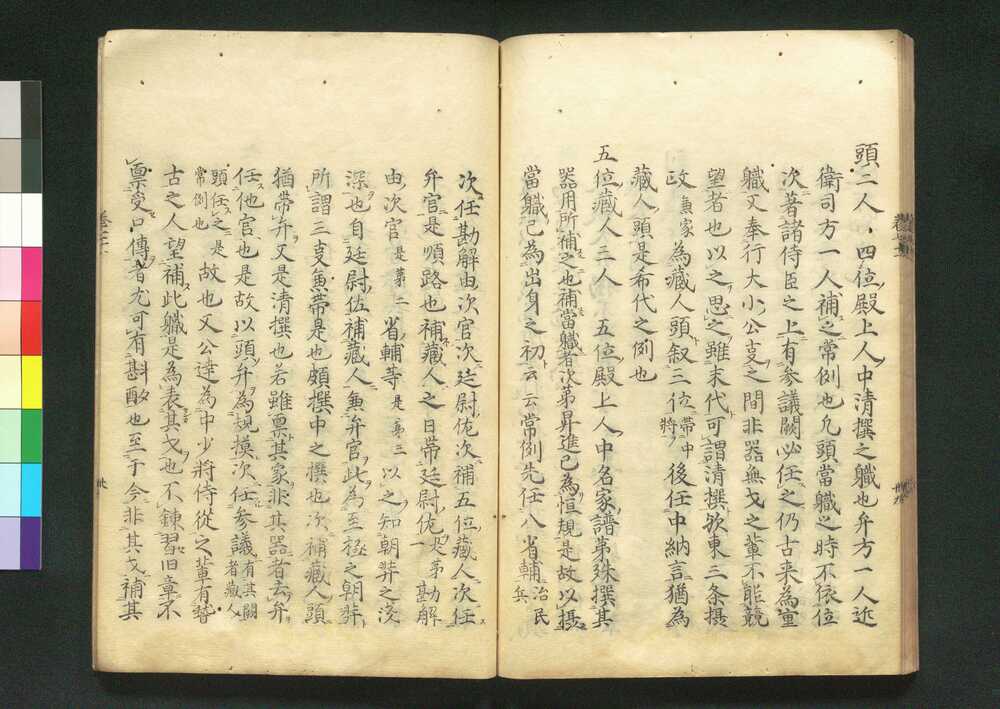 頭二人、四位殿上人中清撰之軄也弁方一人近
衛司方一人補之常例也凢頭當軄之時不依位
次著諸侍臣之上有参議闕必任之仍古来為重
軄又奉行大小公叓之間非器無才之輩不能競
望者也以之思之雖末代可謂清撰欤東三条摂
政兼家為藏人頭叙三位帯中将後任中納言猶為
藏人頭是希代之例也
五位藏人三人 五位殿上人中名家譜苐殊撰其
器用所補之也補當軄者次苐昇進已為恒規是故以摂
當軄已為出身之初云云常例先任八省輔治民兵
次任勘解由次官次廷尉佐次補五位藏人次任
弁官是順路也補藏人之日帯廷尉佐是苐一勘解
由次官是苐二省輔等是苐三以之知朝弉之浅
深也自廷尉佐補藏人兼弁官此為至極之朝弉
所謂三叓兼帯是也頗撰中之撰也次補藏人頭
猶帯弁又是清撰也若雖稟其家非其器者去弁
任他官也是故以頭弁為規摸次任参議有其闕者藏人
頭任之是常例也是故也又公達為中少将侍從之輩有
古之人望補此軄是為表其才也不錬習旧章不
稟受口傳者尤可有斟酌也至于今非其才補其